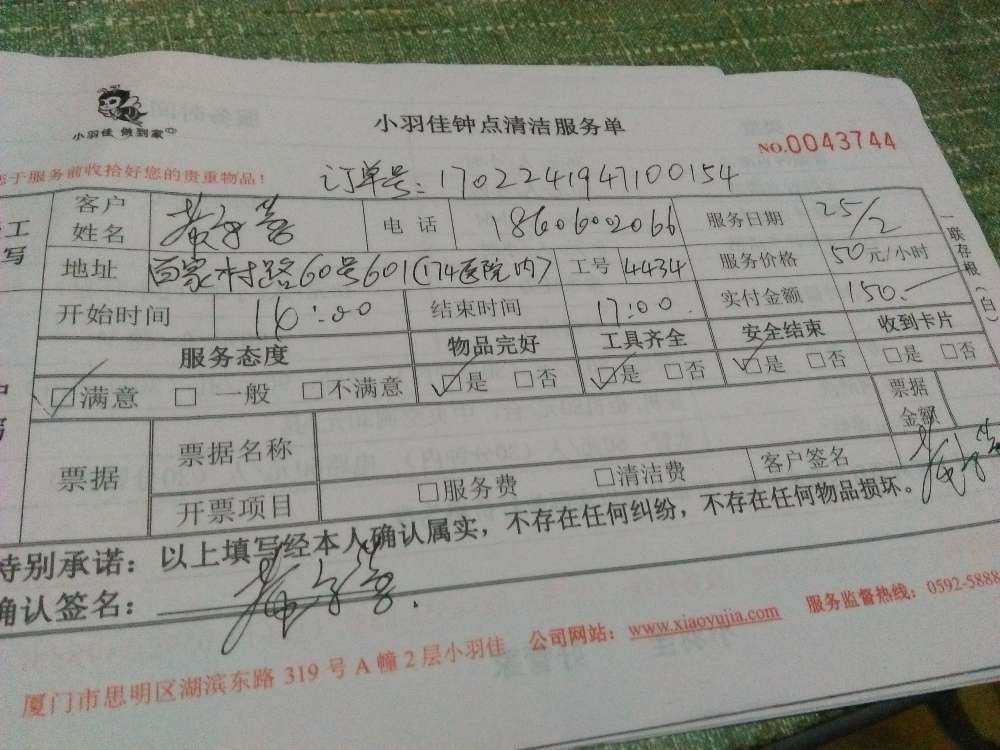 小羽佳 做到家
小羽佳钟点清洁服务单
NO.0043744
于服务前收拾好您的贵重物品!
订单号:1702241947100154
客户姓名 电话 18606002066 服务日期 25/2
地址 百家村路60号601(174医院内) 工号 4434 服务价格 50元/小时
开始时间 16:00 结束时间 17:00 实付金额 150.
服务态度 物品完好 工具齐全 安全结束 收到卡片
☑满意 □一般 □不满意 ☑是 □否 ☑是 □否 ☑是 □否 □是 □否
票据 票据名称 票据金额
开票项目 □服务费 □清洁费 客户签名
特别承诺:以上填写经本人确认属实,不存在任何纠纷,不存在任何物品损坏。
确认签名:
厦门市思明区湖滨东路 319 号 A 幢 2 层小羽佳 公司网站:www.xiaoyujia.com 服务监督热线:0592-5888
一联存根(白)